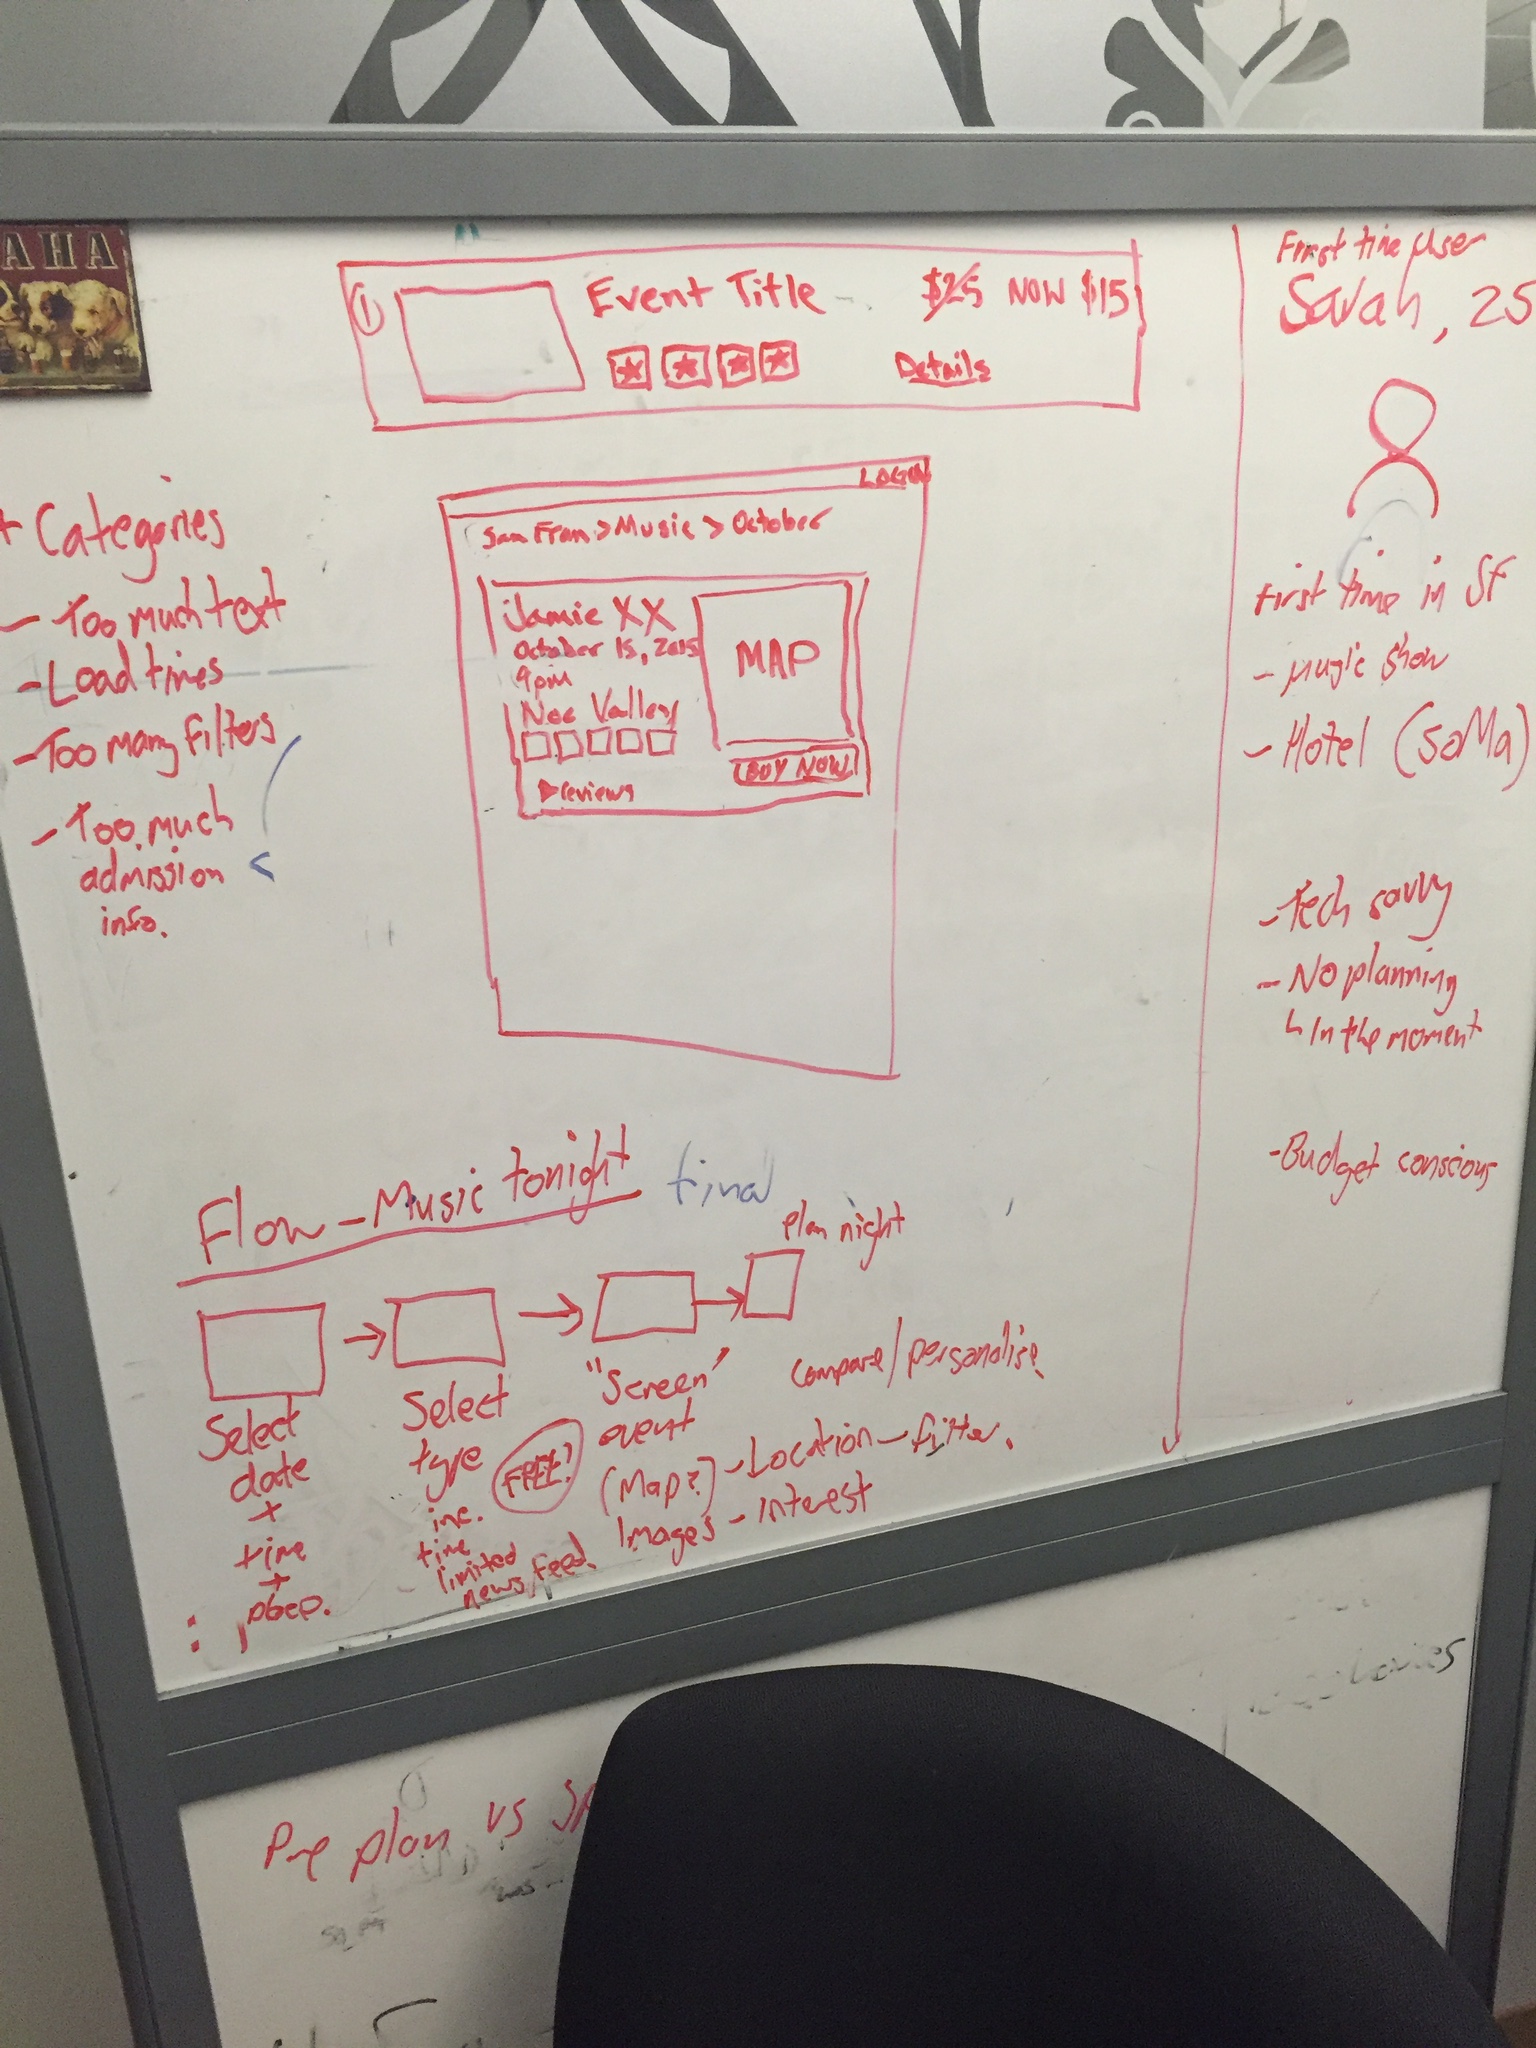 AHA
Event Title
$25 NOW $15
Details
First time user
Sarah, 25
First time in SF
- Music show
- Hotel (SoMa)
- Tech savvy
- No planning
↳ In the moment
- Budget conscious
+ Categories
- Too much text
- Load times
- Too many filters
- Too much
admission
info.
LOGIN
San Fran > Music > October
Jamie XX
October 15, 2015
9pm
Noe Valley
MAP
BUY NOW
reviews
Flow - Music tonight
final
Plan night
Select
date
+
time
+
Select
type
inc.
time
limited
news feed.
FREE?
"Screen"
event
(Map?) - Location - filter.
Images - Interest
Compare/personalise
Pre plan vs